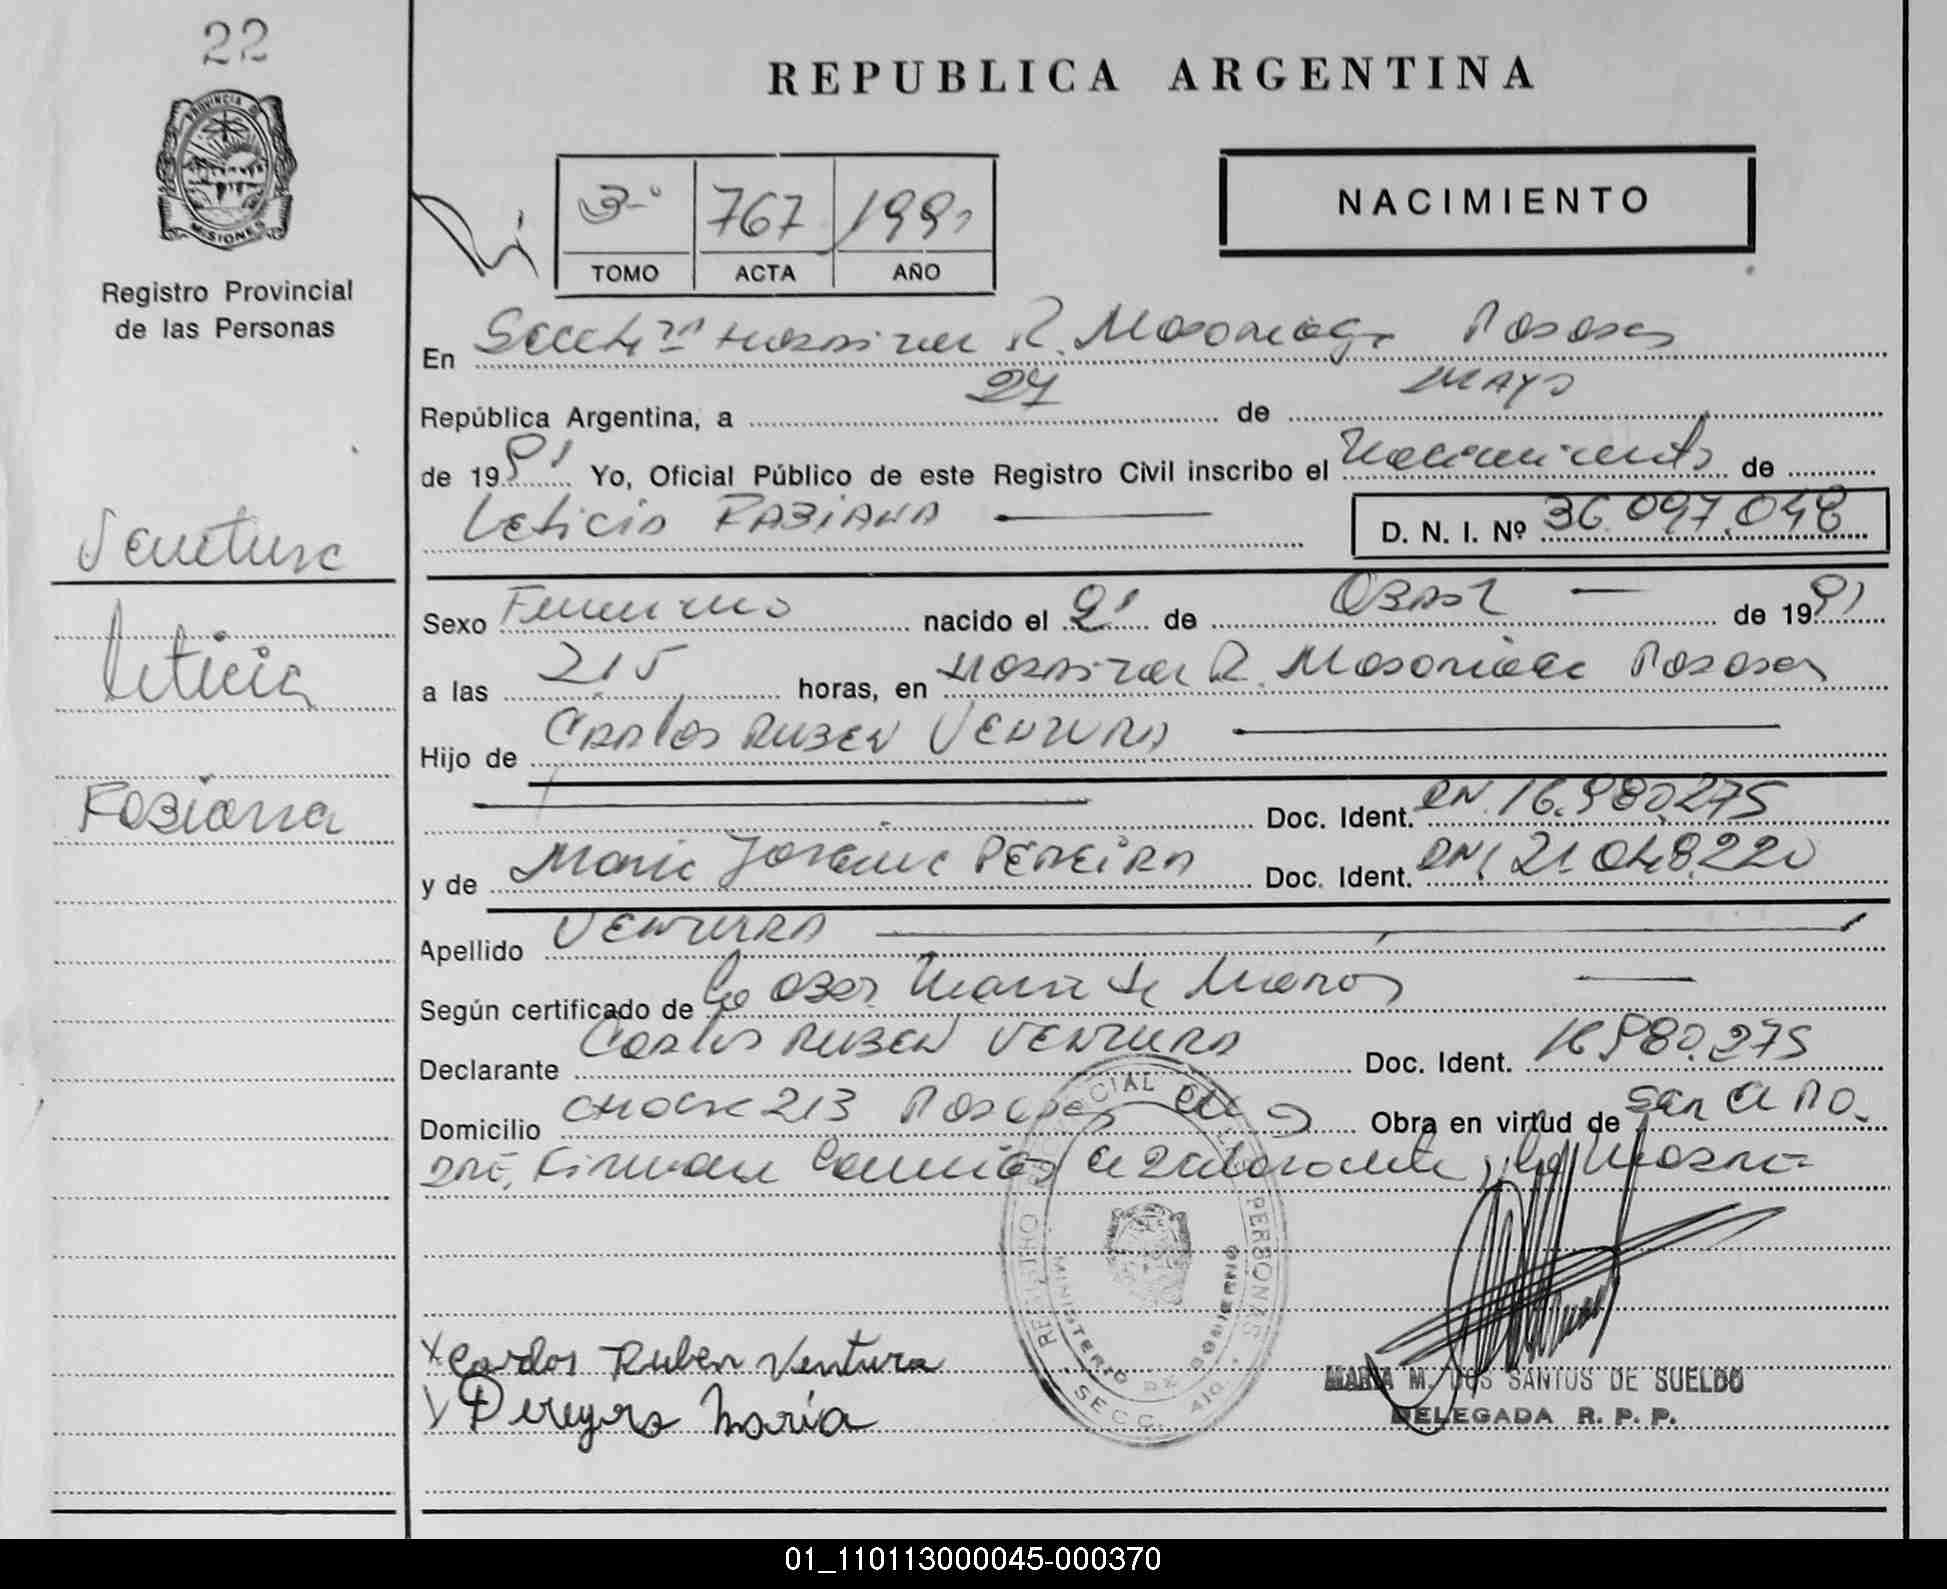 22
PROVINCIA D
MISIONES
Registro Provincial
de las Personas
Ventura
Leticia
Fabiana
REPUBLICA ARGENTINA
3º 767 1991
TOMO ACTA AÑO
NACIMIENTO
En Hospital R. Posadas
República Argentina, a 27 de Mayo
de 1991 Yo, Oficial Público de este Registro Civil inscribo el Nacimiento de
Leticia FABIANA
D. N. I. Nº 36.097.048
Sexo Femenino nacido el 21 de de 1991
a las 215 horas, en Hospital R. Posadas
Hijo de Carlos RUBEN VENTURA
Doc. Ident. DNI 16.980.275
y de Maria PEREIRA Doc. Ident. DNI 21.048.220
Apellido VENTURA
Según certificado de Maria
Declarante Carlos RUBEN VENTURA Doc. Ident. 16.980.275
Domicilio 213 Posadas Obra en virtud de
REGISTRO PROVINCIAL DE LAS PERSONAS
MINISTERIO DE GOBIERNO
SECC.
x Carlos Ruben Ventura
Pereyra María
MARIA M. DOS SANTOS DE SUELDO
DELEGADA R. P. P.
01_110113000045-000370